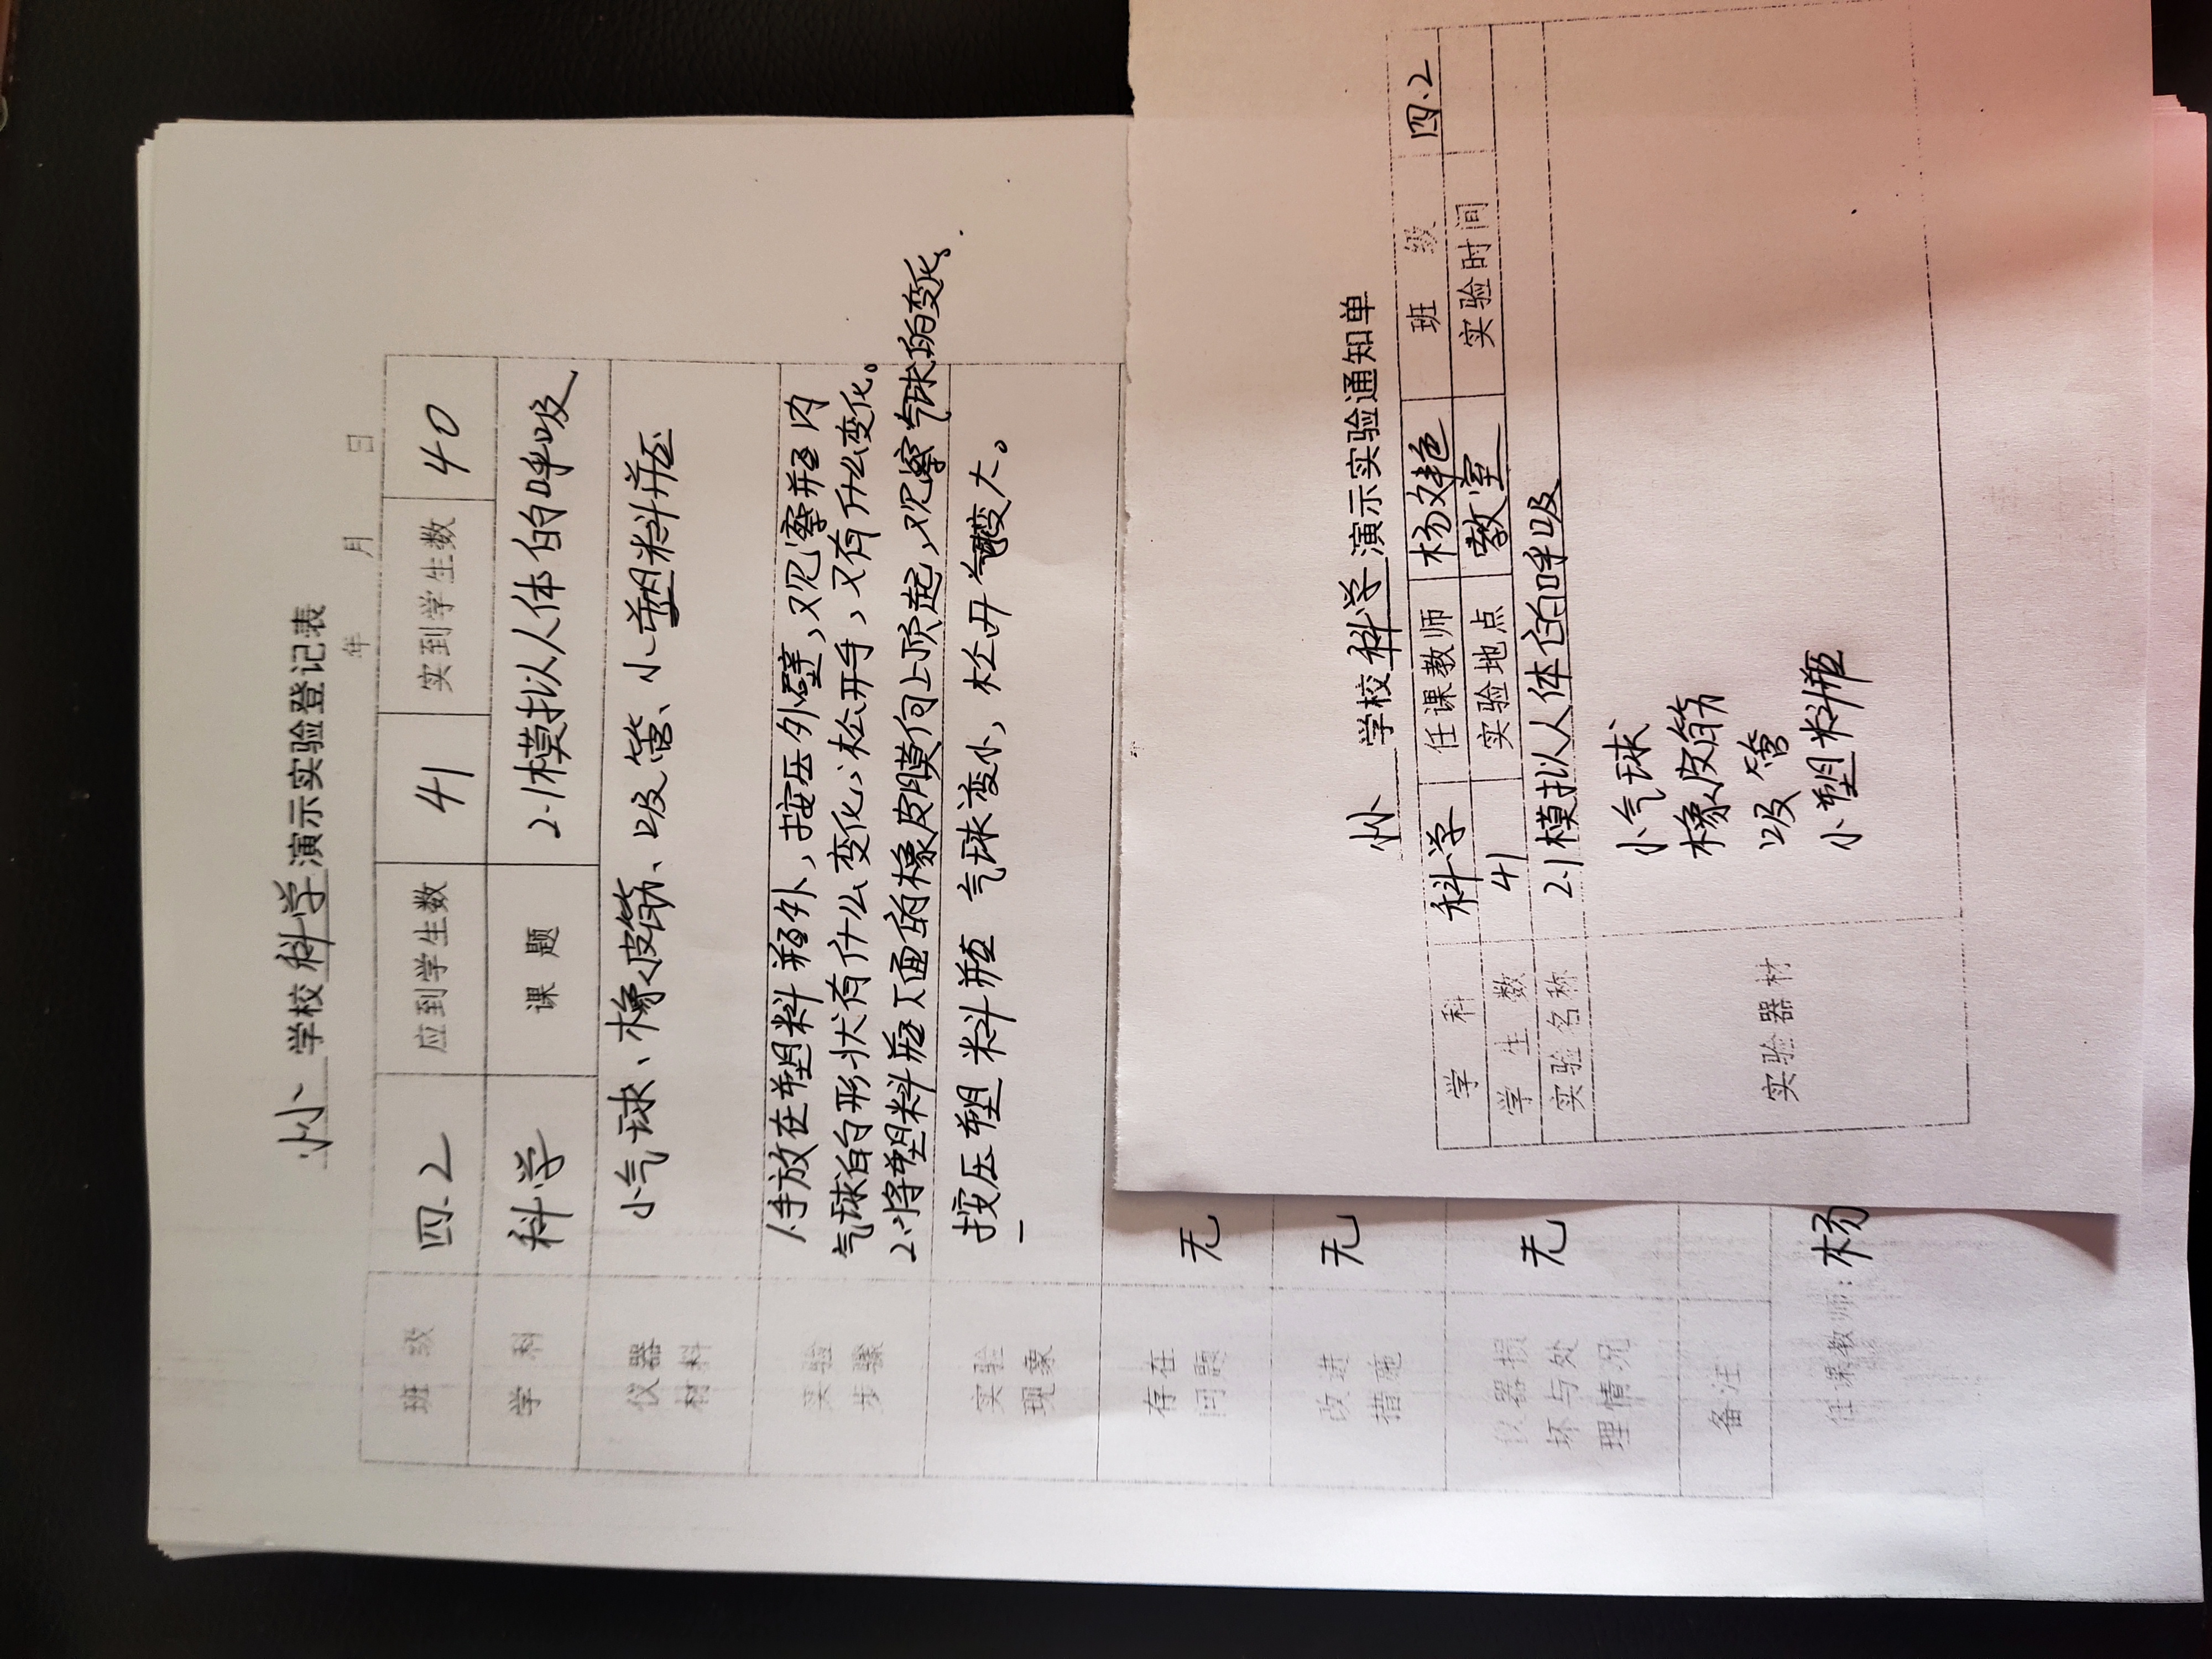 学校科学演示实验登记表
年 月 日
班级 四.2 应到学生数 41 实到学生数 40
学科 科学 课题 2.1模拟人体的呼吸
仪器材料 小气球、橡皮筋、吸管、小塑料瓶
实验步骤 1.手放在塑料瓶外,按压外壁,观察瓶内
气球的形状有什么变化;松开手,又有什么变化。
2.将塑料瓶下面的橡皮膜向上顶起,观察气球的变化。
实验现象 按压塑料瓶 气球变小,松开气变大。
存在问题 无
改进措施 无
仪器损坏与处理情况 无
备注
任课教师:杨
学校科学演示实验通知单
学科 科学 任课教师 杨艳 班级 四.2
学生数 41 实验地点 教室 实验时间
实验名称 2.1模拟人体的呼吸
实验器材 小气球
橡皮筋
吸管
小塑料瓶